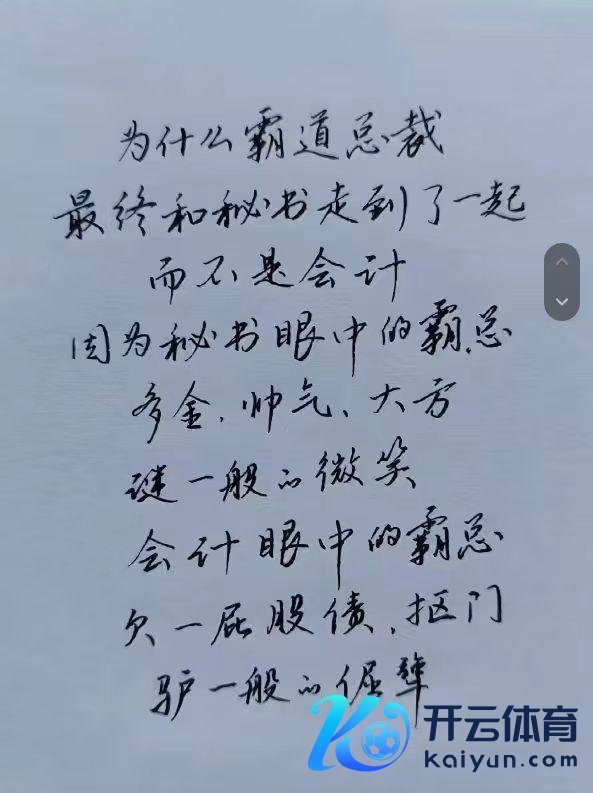 为什么霸道总裁
最终和秘书走到了一起
而不是会计
因为秘书眼中的霸总
多金、帅气、大方
谜一般的微笑
会计眼中的霸总
欠一屁股债、抠门
驴一般的倔犟
开云体育
kaiyun.com